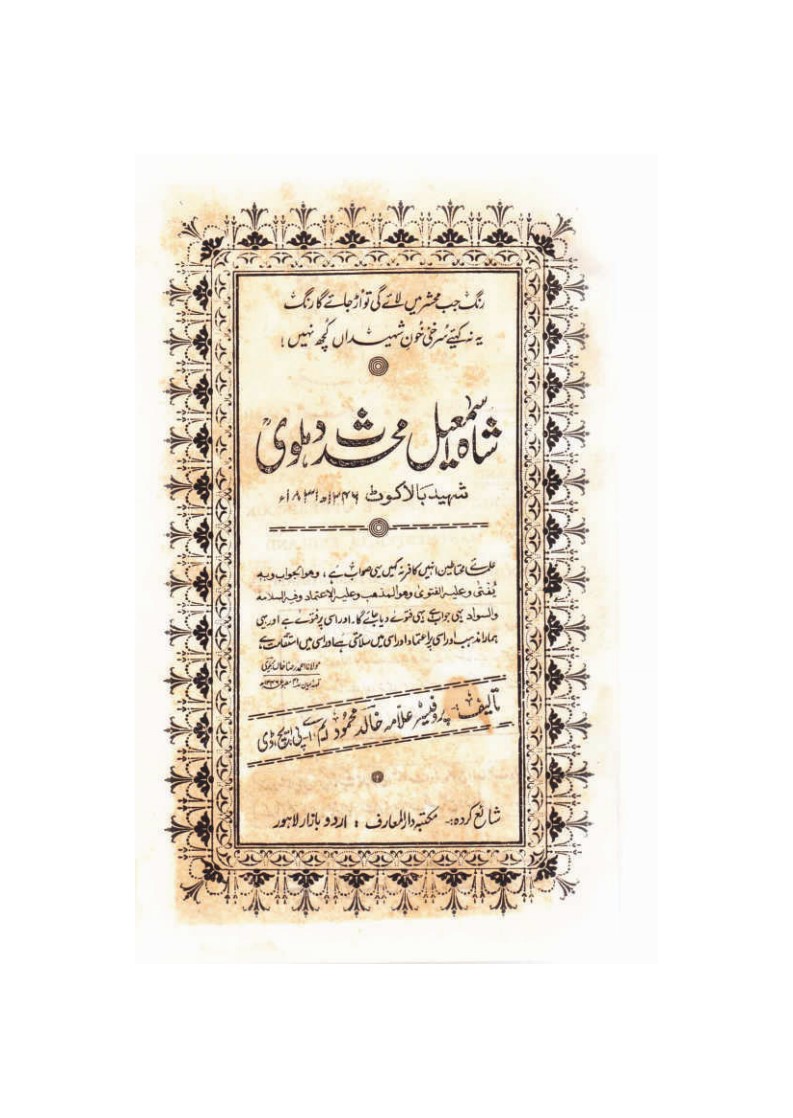 رنگ جب محشر میں لائے گی تو اڑ جائے گا رنگ
یہ نہ کہئے سُرخیٔ خُونِ شہیداں کُچھ نہیں!
شاہ اسمٰعیل محدث دہلوی
شہید بالاکوٹ ۱۲۴۶ھ ۱۸۳۱ء
علمائے محتاطین انہیں کافر نہ کہیں یہی صواب ہے، وھو الجواب وبہ
یُفتیٰ وعلیہ الفتویٰ وھو المذھب وعلیہ الاعتماد وفیہ السلامۃ
والسداد یہی جواب ہے یہی فتوے دیا جائے گا۔ اور اسی پر فتوے ہے اور یہی
ہمارا مذہب اور اسی پر اعتماد اور اسی میں سلامتی ہے اور اسی میں استقامت ہے،
مولانا احمد رضا خاں بریلوی
تالیف :- پروفیسر علامہ خالد محمُود ایم اے پی ایچ ڈی
شائع کردہ:- مکتبہ دارالمعارف : اردو بازار لاہور